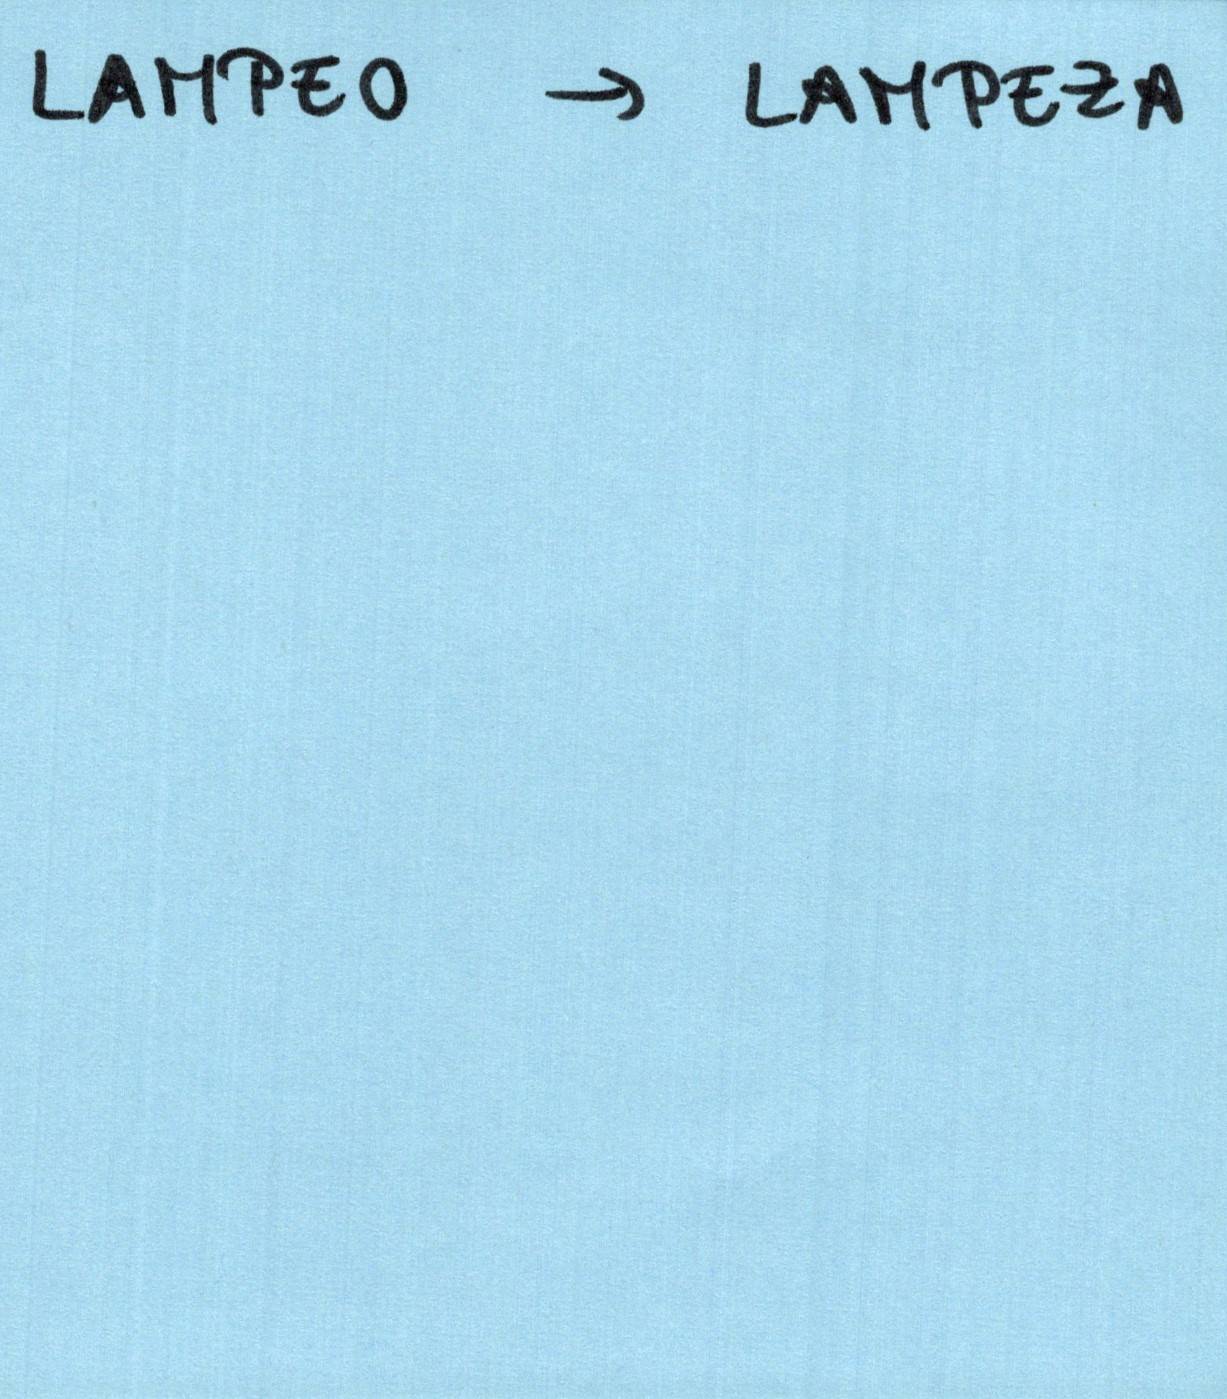 LAMPEO → LAMPEZA